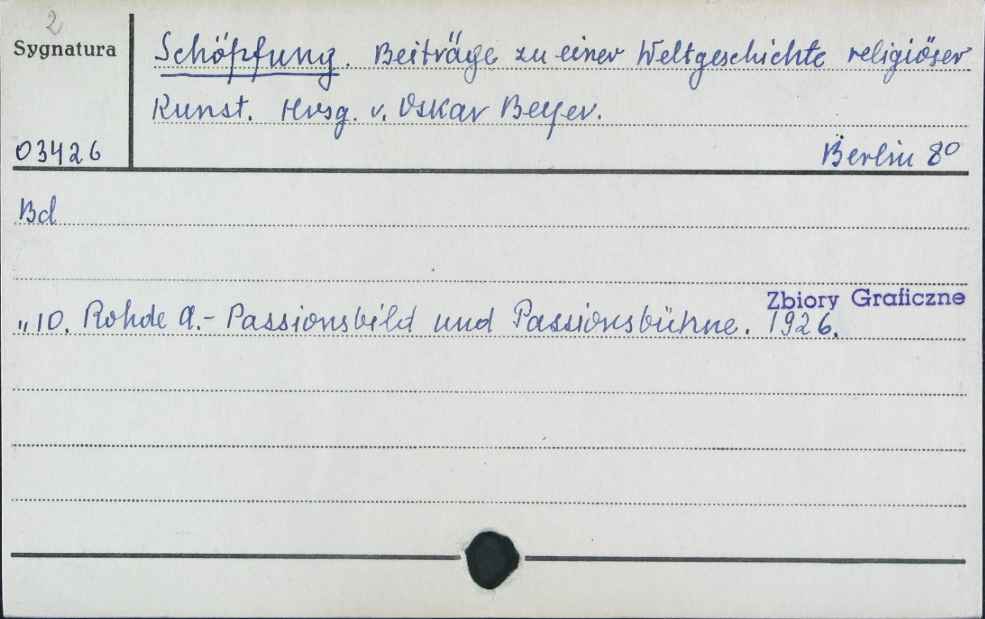 2
Sygnatura
Schöpfung. Beiträge zu einer Weltgeschichte religiöser
Kunst. Hrsg. v. Oskar Beyer.
03426
Berlin 8°
Bd
Zbiory Graficzne
„ 10. Rohde A.- Passionsbild und Passionsbühne. 1926.